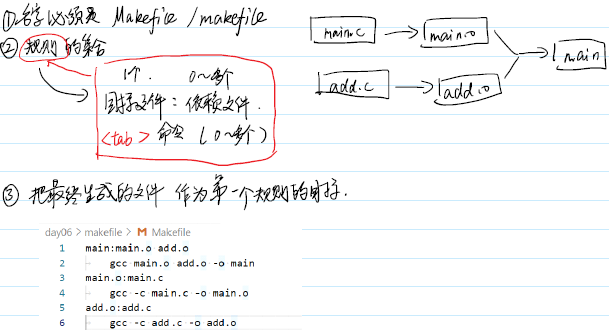 ①名字必须是 Makefile / makefile
② 规则的集合
1个. 0~多个
目标文件: 依赖文件.
<tab> 命令 (0~多个)
main.c
main.o
main
add.c
add.o
③ 把最终生成的文件 作为第一个规则的目标.
day06 > makefile > M Makefile
1 main:main.o add.o
2 gcc main.o add.o -o main
3 main.o:main.c
4 gcc -c main.c -o main.o
5 add.o:add.c
6 gcc -c add.c -o add.o